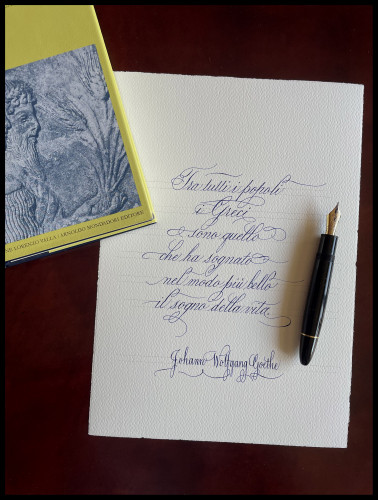 Tra tutti i popoli
i Greci
sono quello
che ha sognato
nel modo più bello
il sogno della vita.
Johann Wolfgang Goethe
LORENZO VALLA / ARNOLDO MONDADORI EDITORE